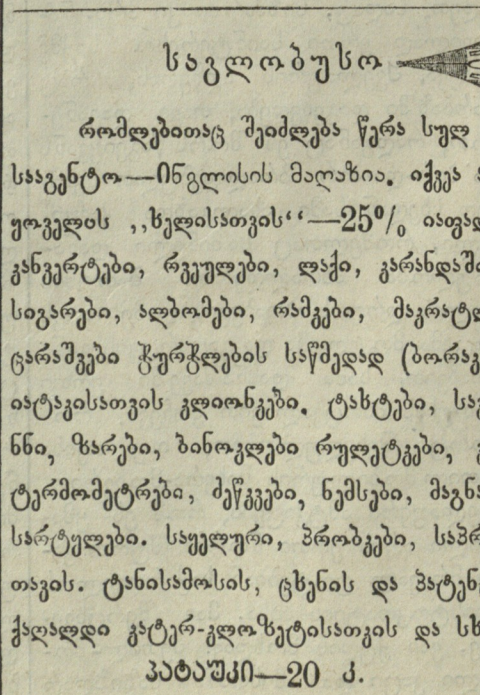 საგლობუსო
რომლებითაც შეიძლება წერა სულ
სააგენტო—ინგლისის მაღაზია. იქვეა
ყოველის ,,ხელისათვის“—25% იაფად
კანვერტები, რვეულები, ლაქი, კარანდაში
სიგარები, ალბომები, რამკები, მაკრატლ
ცარაშვები ჭურჭლების საწმედად (ბორაკ
იატაკისათვის კლიონკები. ტახტები, სა
ნნი, ზარები, ბინოკლები რულეტკები,
ტერმომეტრები, ძეწკვები, ნემსები, მაგნ
სარტყლები. საყელური, პრობკები, საპრ
თავის. ტანისამოსის, ცხენის და პატენ
ქაღალდი კატერ-კლოზეტისათვის და სხ
პატაუკი—20 კ.